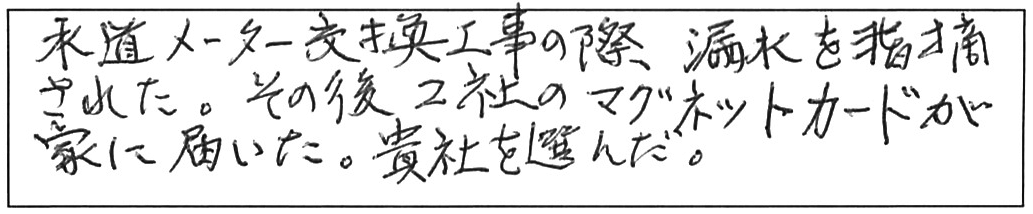 水道メーター交換工事の際、漏水を指摘
された。その後2社のマグネットカードが
家に届いた。貴社を選んだ。